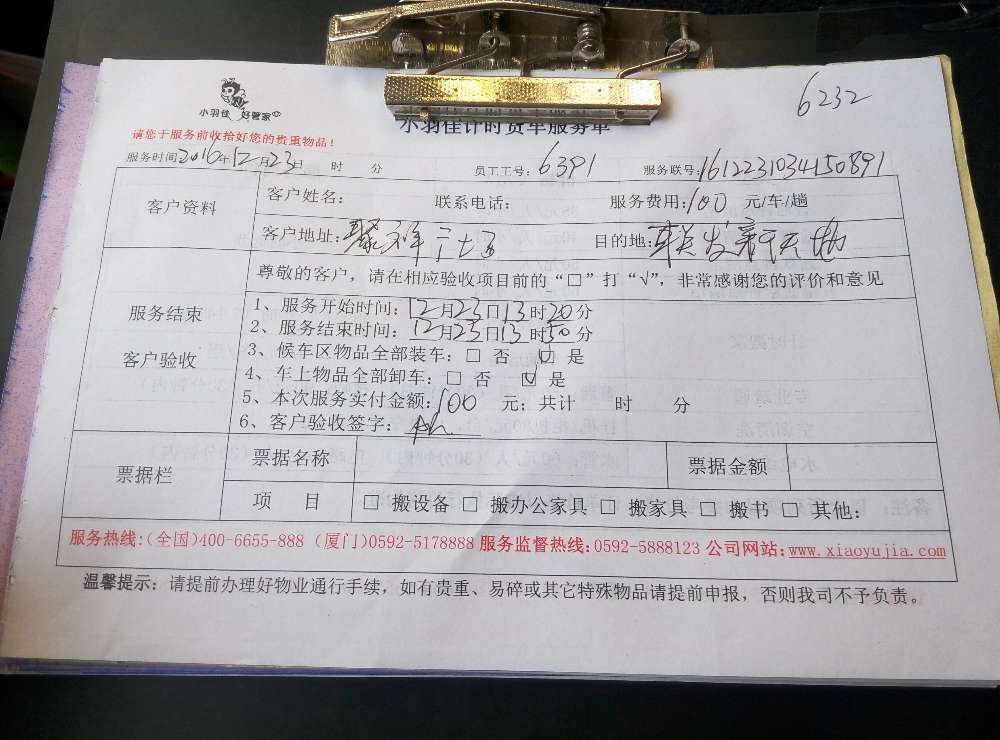 6232
小羽佳 好管家
小羽佳计时货车服务单
请您于服务前收拾好您的贵重物品！
服务时间2016年12月23日 时 分 员工工号：6391 服务联号：1612231034150891
客户资料 客户姓名： 联系电话： 服务费用：100 元/车/趟
客户地址：聚祥广场 目的地：联发新天地
服务结束 客户验收
尊敬的客户，请在相应验收项目前的“□”打“√”，非常感谢您的评价和意见
1、服务开始时间：12月23日13时20分
2、服务结束时间：12月23日13时50分
3、候车区物品全部装车：□ 否 ☑ 是
4、车上物品全部卸车：□ 否 ☑ 是
5、本次服务实付金额：100 元；共计 时 分
6、客户验收签字：
票据栏 票据名称 票据金额
项 目 □ 搬设备 □ 搬办公家具 □ 搬家具 □ 搬书 □ 其他：
服务热线：(全国)400-6655-888 (厦门)0592-5178888 服务监督热线：0592-5888123 公司网站：www.xiaoyujia.com
温馨提示：请提前办理好物业通行手续，如有贵重、易碎或其它特殊物品请提前申报，否则我司不予负责。